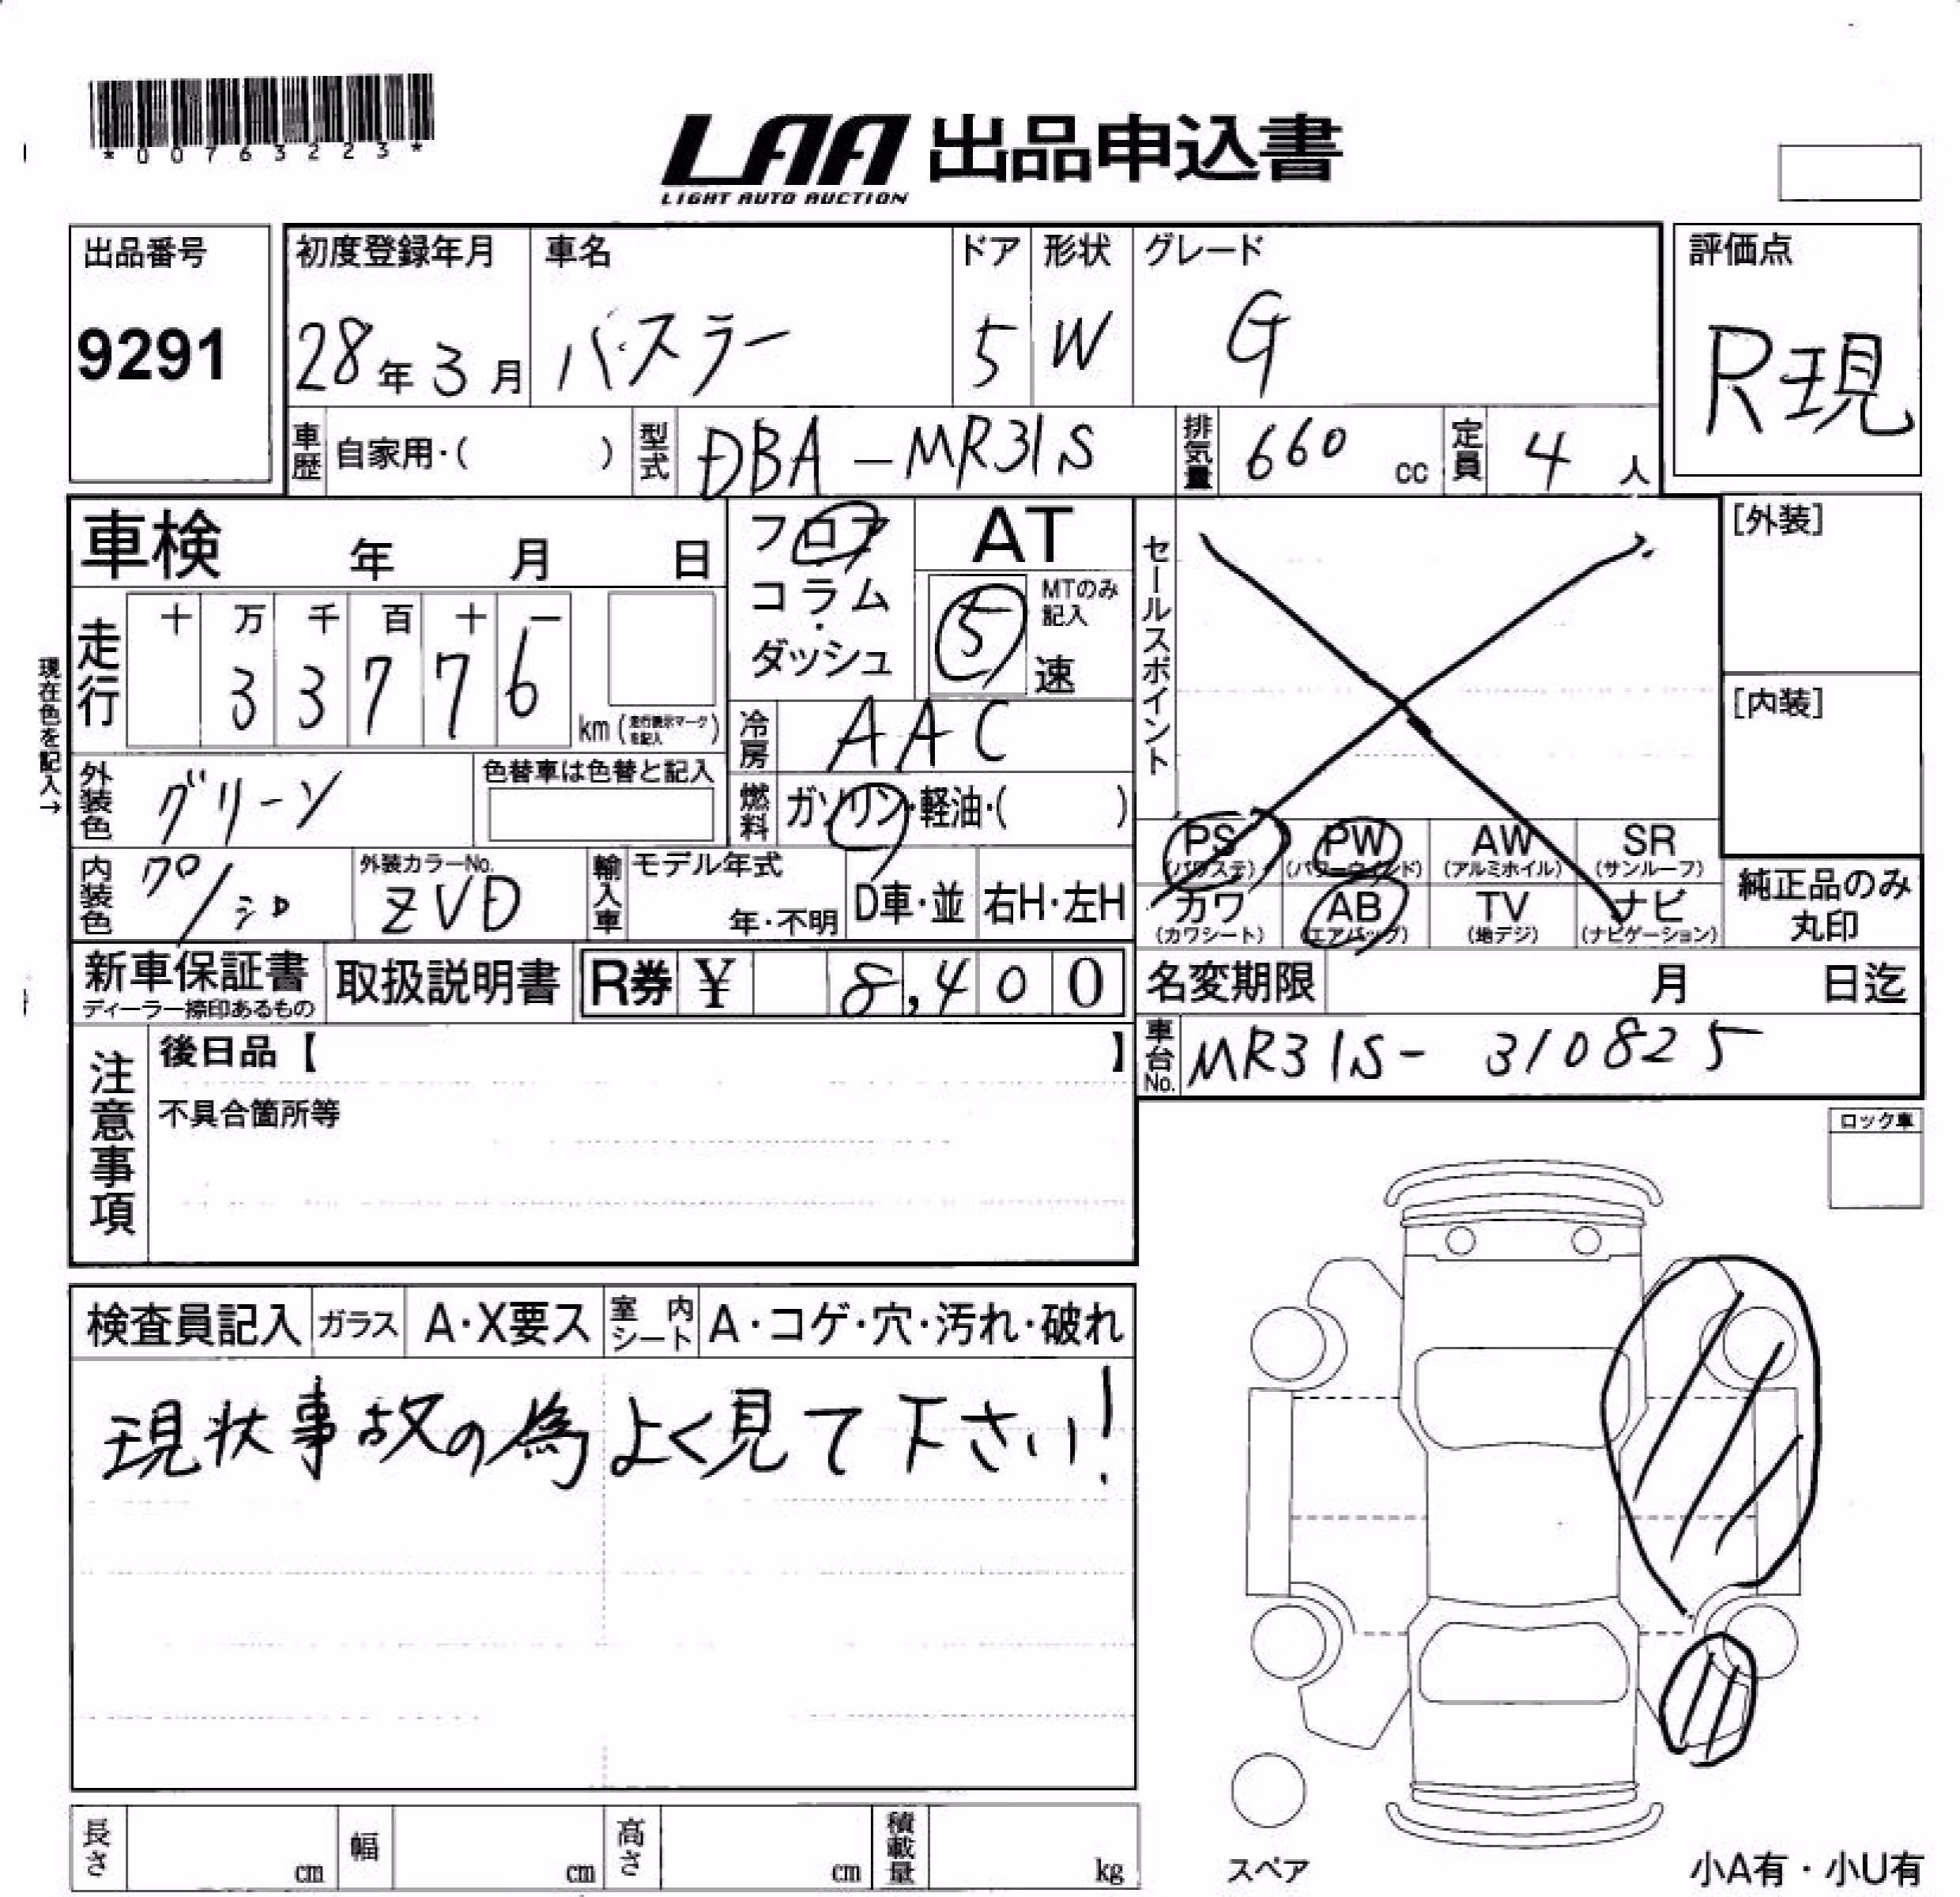 *00763223*
LAA 出品申込書
LIGHT AUTO AUCTION
出品番号
9291
初度登録年月
28年3月
車名
バスラー
ドア
5
形状
W
グレード
G
評価点
R現
車歴 自家用・( )
型式 DBA-MR31S
排気量 660 cc
定員 4 人
車検 年 月 日
フロア
コラム・
ダッシュ
AT
5 速
MTのみ
記入
セールスポイント
[外装]
[内装]
現在色を記入→
走行
十 万 千 百 十 一
3 3 7 7 6
km (走行表示マークを記入)
冷房 AAC
外装色 グリーン
色替車は色替と記入
燃料 ガソリン・軽油・( )
PS (パワステ)
PW (パワーウィンド)
AW (アルミホイル)
SR (サンルーフ)
内装色
外装カラーNo.
ZVD
輸入車
モデル年式
年・不明
D車・並
右H・左H
カワ (カワシート)
AB (エアバッグ)
TV (地デジ)
ナビ (ナビゲーション)
純正品のみ
丸印
新車保証書
ディーラー捺印あるもの
取扱説明書
R券 ¥ 8,400
名変期限 月 日迄
車台No. MR31S- 310825
注意事項
後日品【 】
不具合箇所等
ロック車
検査員記入
ガラス
A・X要ス
室内シート
A・コゲ・穴・汚れ・破れ
現状事故の為よく見て下さい!
長さ cm
幅 cm
高さ cm
積載量 kg
スペア
小A有・小U有